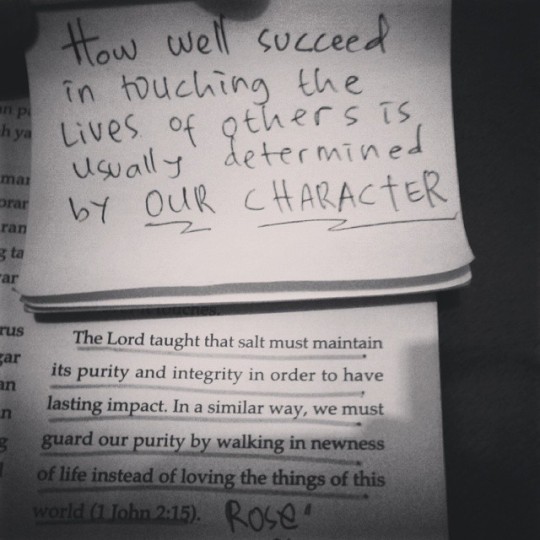 How well succeed
in touching the
Lives of others is
usually determined
by OUR CHARACTER
touches.
The Lord taught that salt must maintain
its purity and integrity in order to have
lasting impact. In a similar way, we must
guard our purity by walking in newness
of life instead of loving the things of this
world (1 John 2:15).
Rose
rus
gar
an
n
g